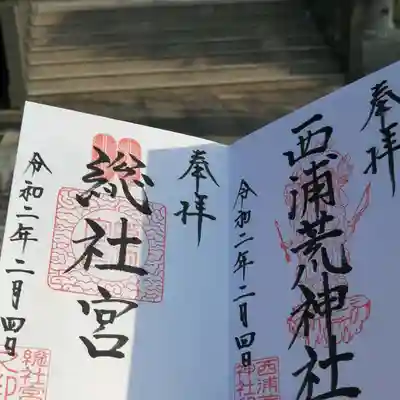 奉拝
西浦荒神社
令和二年二月四日
奉拝
総社宮
令和二年二月四日